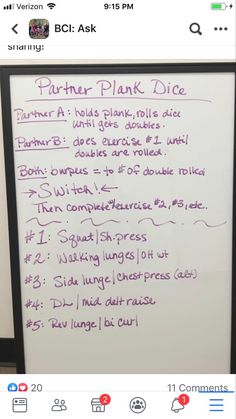 Verizon 9:15 PM
BCI: Ask
sharing!
Partner Plank Dice
Partner A: holds plank, rolls dice
until gets doubles.
Partner B: does exercise #1 until
doubles are rolled.
Both: burpees = to # of double rolled
→ Switch! ←
Then complete exercise #2, #3, etc..
#1: Squat/sh. press
#2: Walking lunges/OH wt
#3: Side lunge/chest press (alt)
#4: DL/mid delt raise
#5: Rev lunge/bi curl
20 11 Comments
2 1